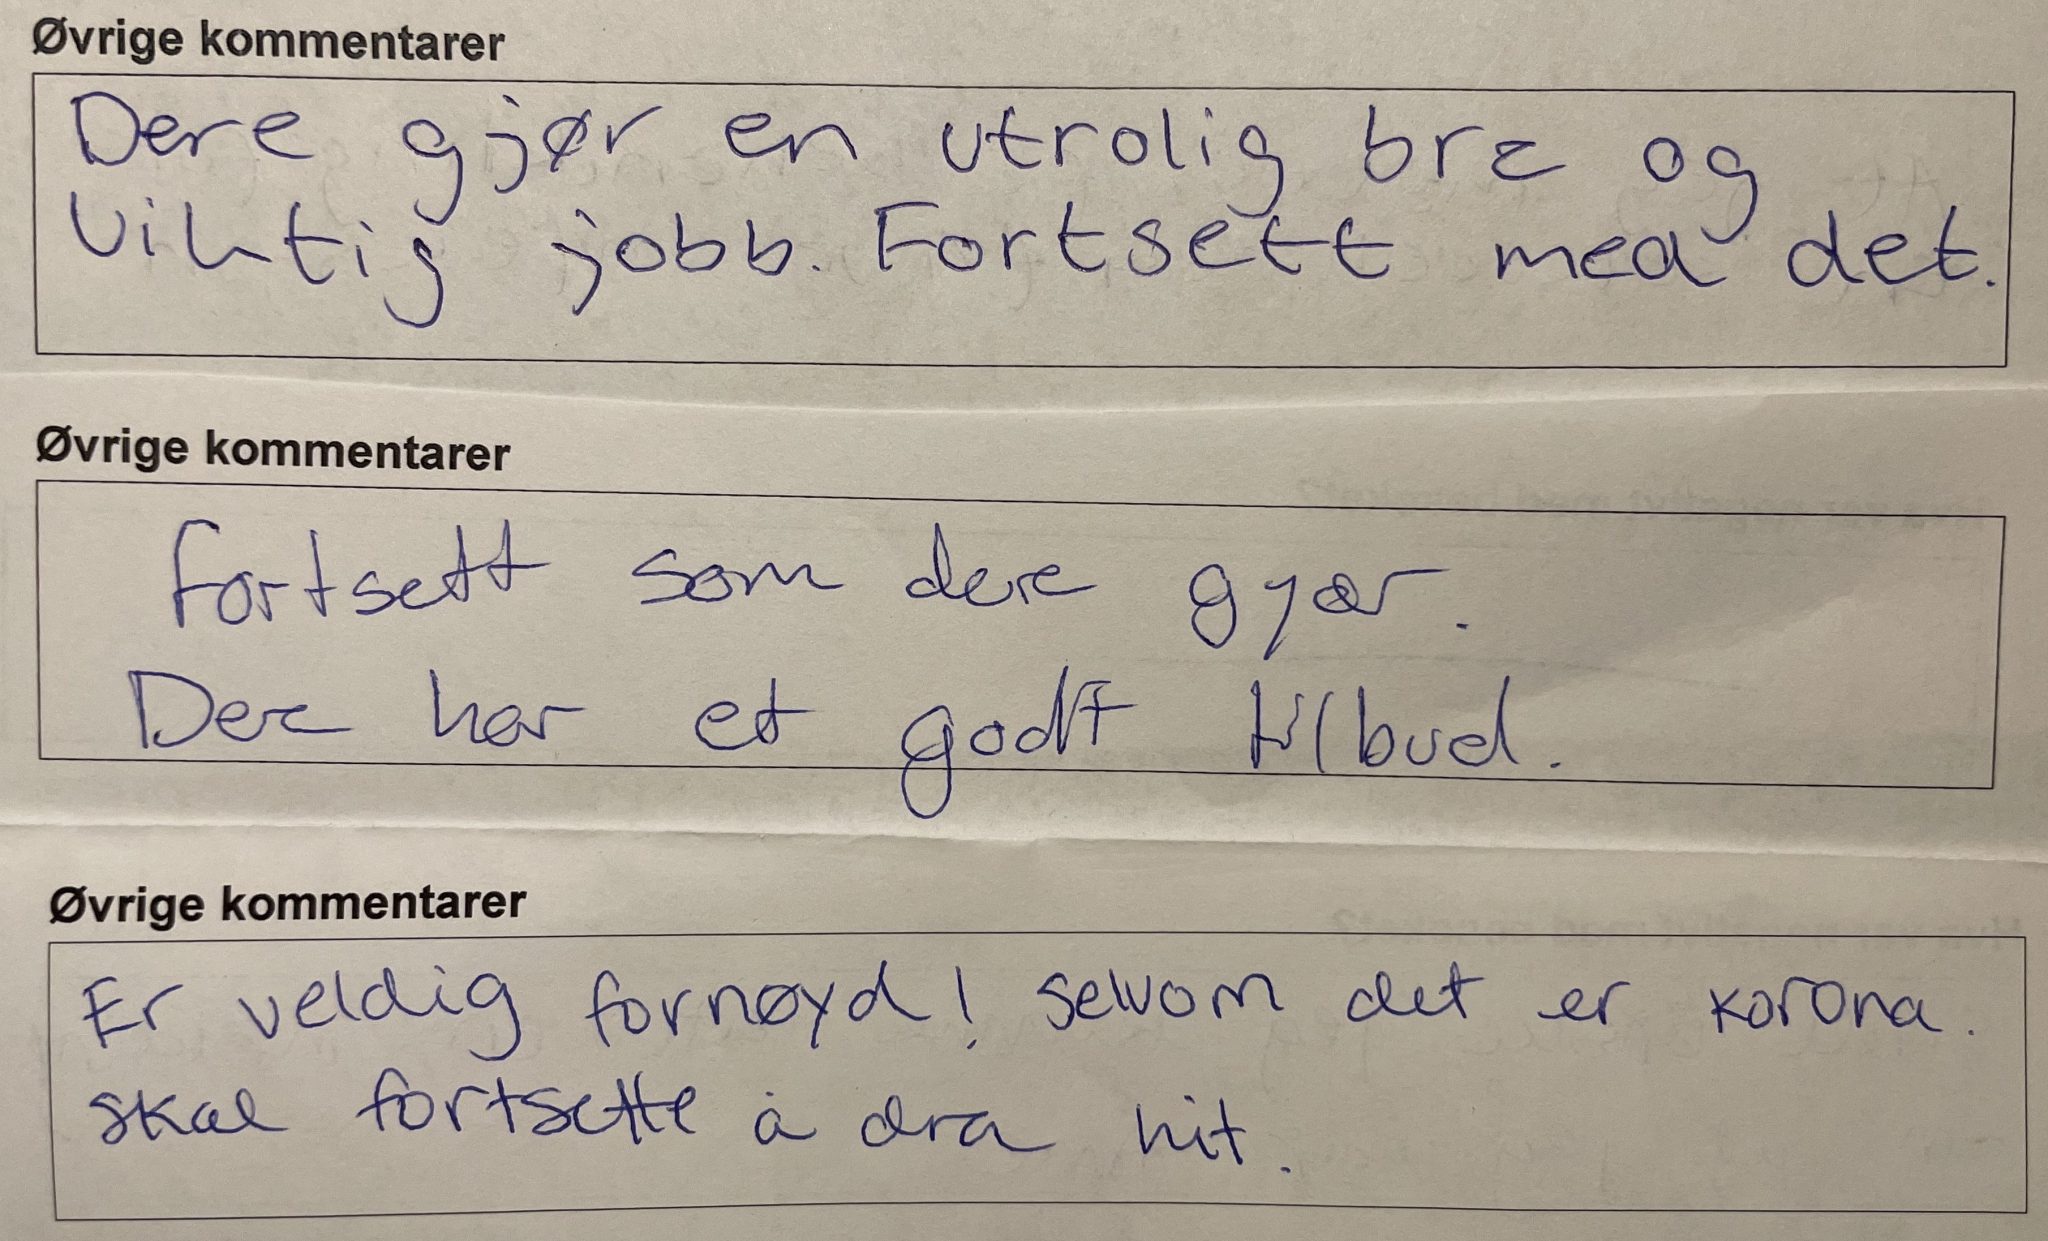 Øvrige kommentarer
Dere gjør en utrolig bra og
viktig jobb. Fortsett med det.
Øvrige kommentarer
Fortsett som dere gjør.
Dere har et godt tilbud.
Øvrige kommentarer
Er veldig fornøyd! selvom det er korona.
skal fortsette å dra hit.